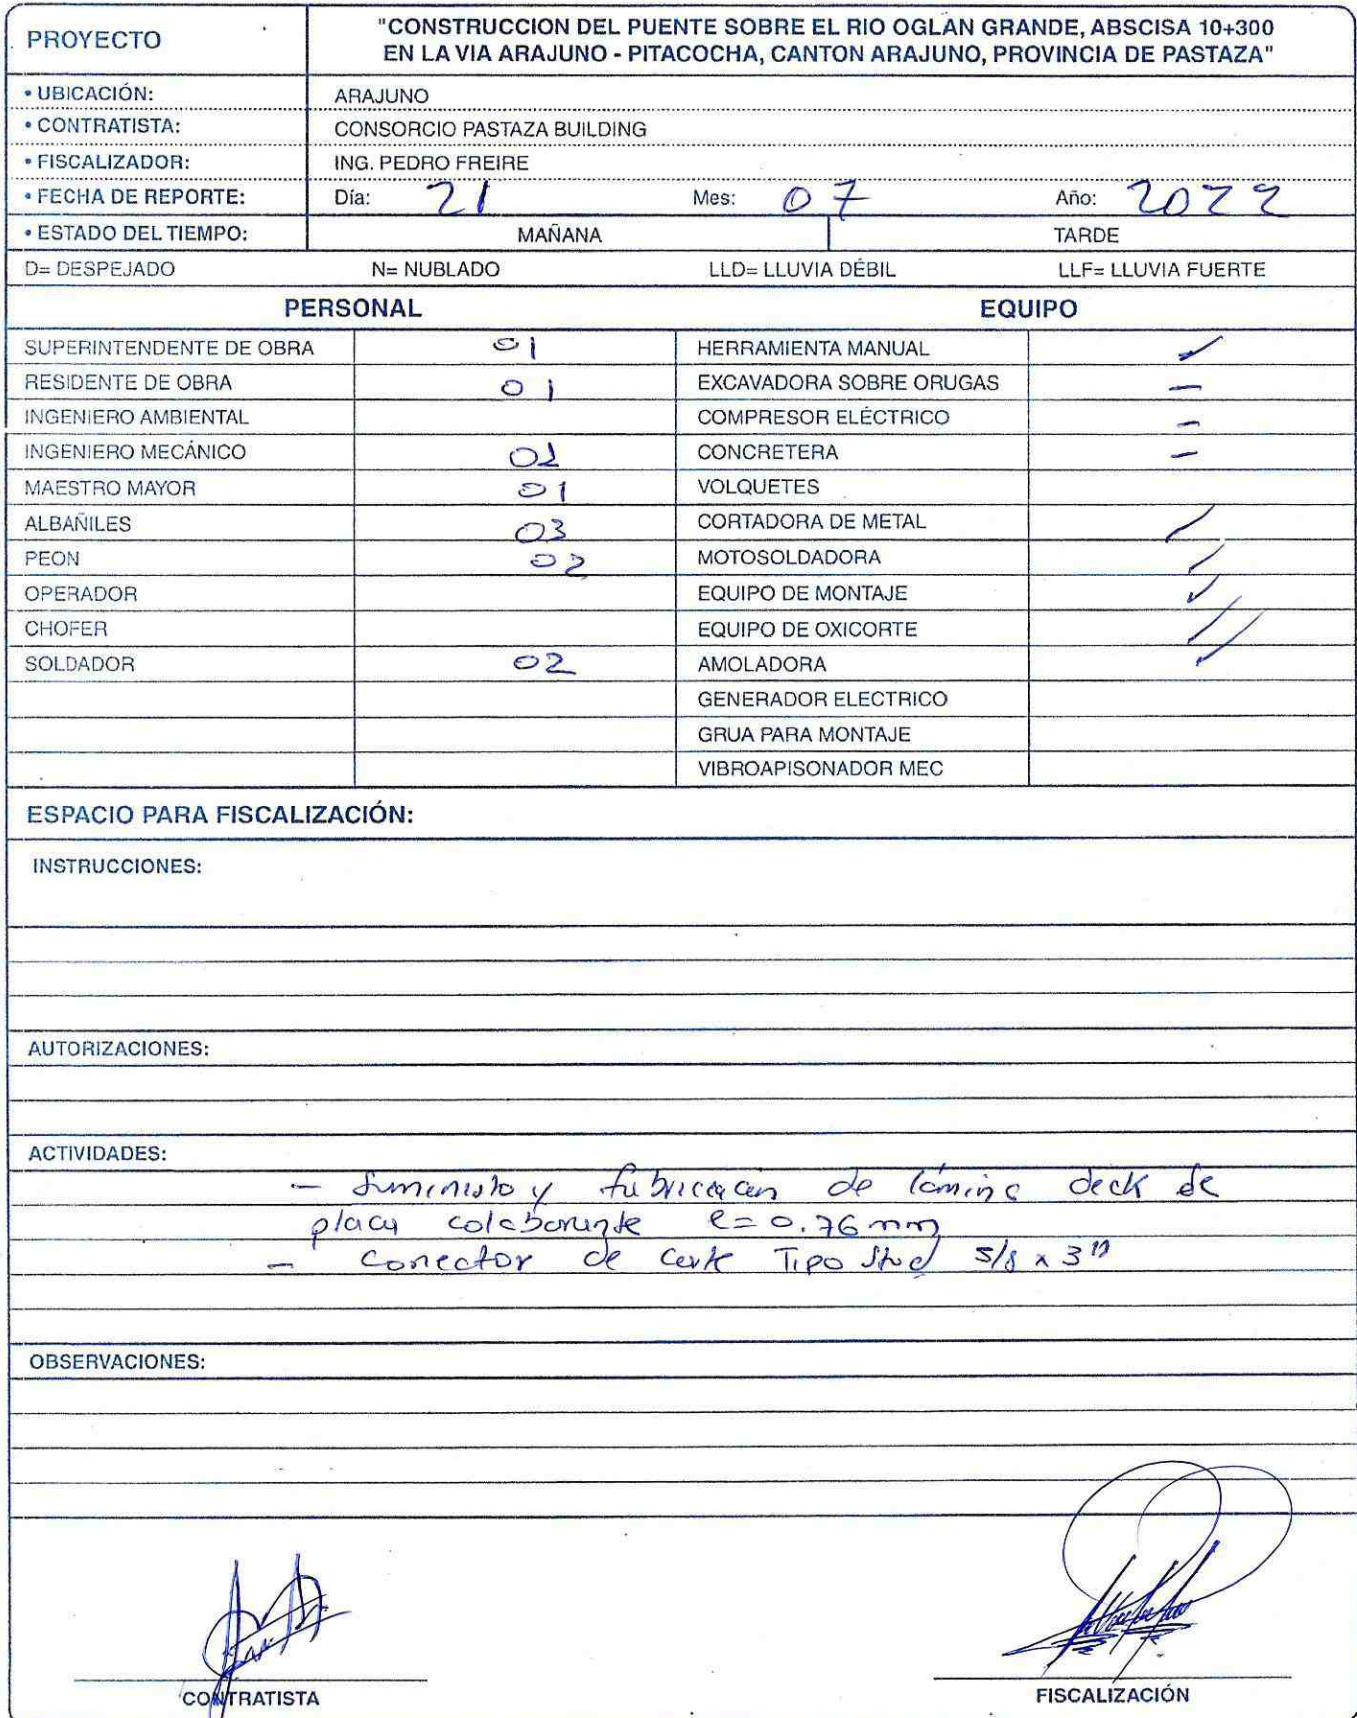 PROYECTO
"CONSTRUCCION DEL PUENTE SOBRE EL RIO OGLAN GRANDE, ABSCISA 10+300
EN LA VIA ARAJUNO - PITACOCHA, CANTON ARAJUNO, PROVINCIA DE PASTAZA"
• UBICACIÓN: ARAJUNO
• CONTRATISTA: CONSORCIO PASTAZA BUILDING
• FISCALIZADOR: ING. PEDRO FREIRE
• FECHA DE REPORTE: Día: 21 Mes: 07 Año: 2022
• ESTADO DEL TIEMPO: MAÑANA TARDE
D= DESPEJADO N= NUBLADO LLD= LLUVIA DÉBIL LLF= LLUVIA FUERTE
PERSONAL EQUIPO
SUPERINTENDENTE DE OBRA 01 HERRAMIENTA MANUAL ✓
RESIDENTE DE OBRA 01 EXCAVADORA SOBRE ORUGAS –
INGENIERO AMBIENTAL COMPRESOR ELÉCTRICO –
INGENIERO MECÁNICO CONCRETERA –
MAESTRO MAYOR 01 VOLQUETES
ALBAÑILES 03 CORTADORA DE METAL ✓
PEON 02 MOTOSOLDADORA ✓
OPERADOR EQUIPO DE MONTAJE ✓
CHOFER EQUIPO DE OXICORTE ✓
SOLDADOR 02 AMOLADORA ✓
GENERADOR ELECTRICO
GRUA PARA MONTAJE
VIBROAPISONADOR MEC
ESPACIO PARA FISCALIZACIÓN:
INSTRUCCIONES:
AUTORIZACIONES:
ACTIVIDADES:
– Suministo y fabricacion de lámina deck de
placa colaborante e= 0.76 mm
– Conector de corte Tipo Stud 5/8 x 3"
OBSERVACIONES:
CONTRATISTA FISCALIZACIÓN